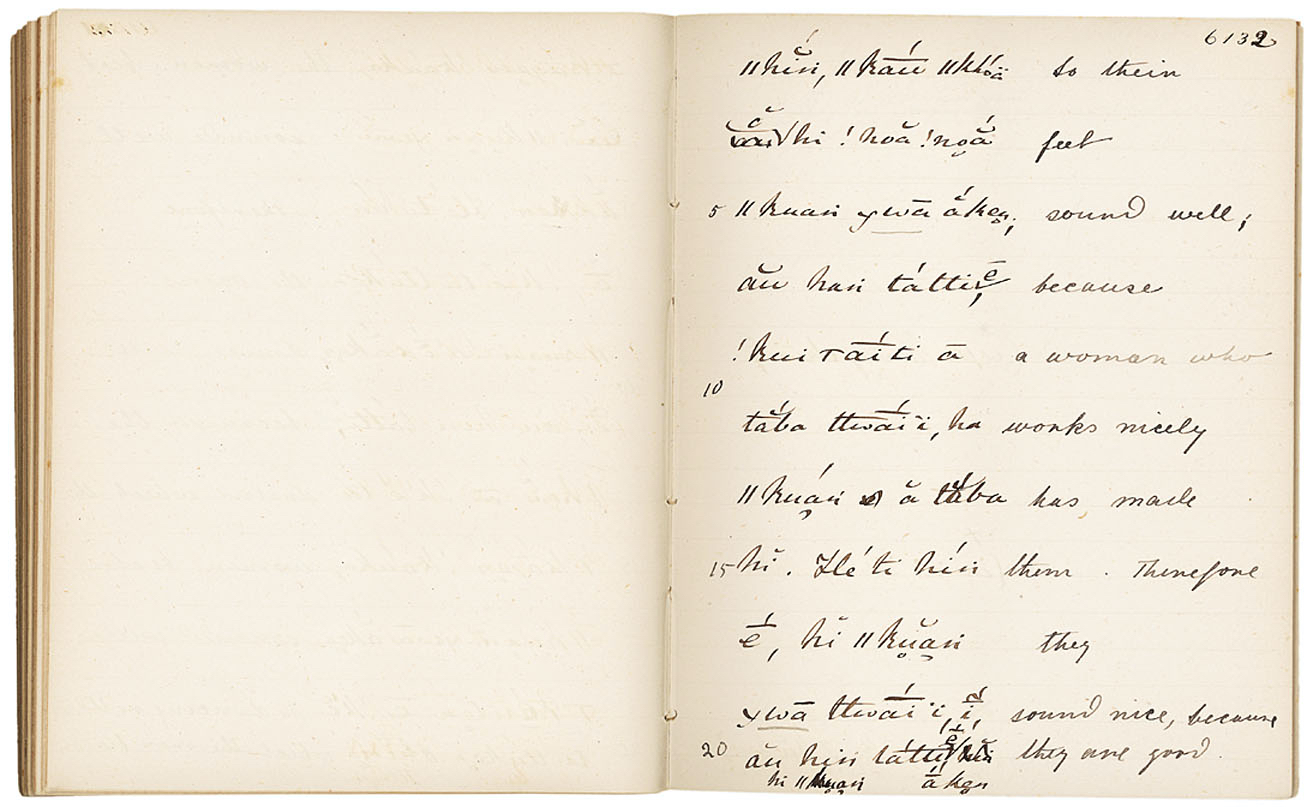 6132
ǁkĭn, ǁkắu ǁkhóä to their
hi !nŏă !nŏắ feet
5 ǁkuan χwā ắken; sound well;
ău han tátti, because
!kui ⊤aíti ā a woman who
10
tắba ttwáiï, ha works nicely
ǁkuán ă tắba has made
15 hĭ. Hé ti hín them. Therefore
é, hĭ ǁkŭan they
χwā ttwáiï, sound nice, because
20 ău hin tátti they are good.
hi ǁkuan āken